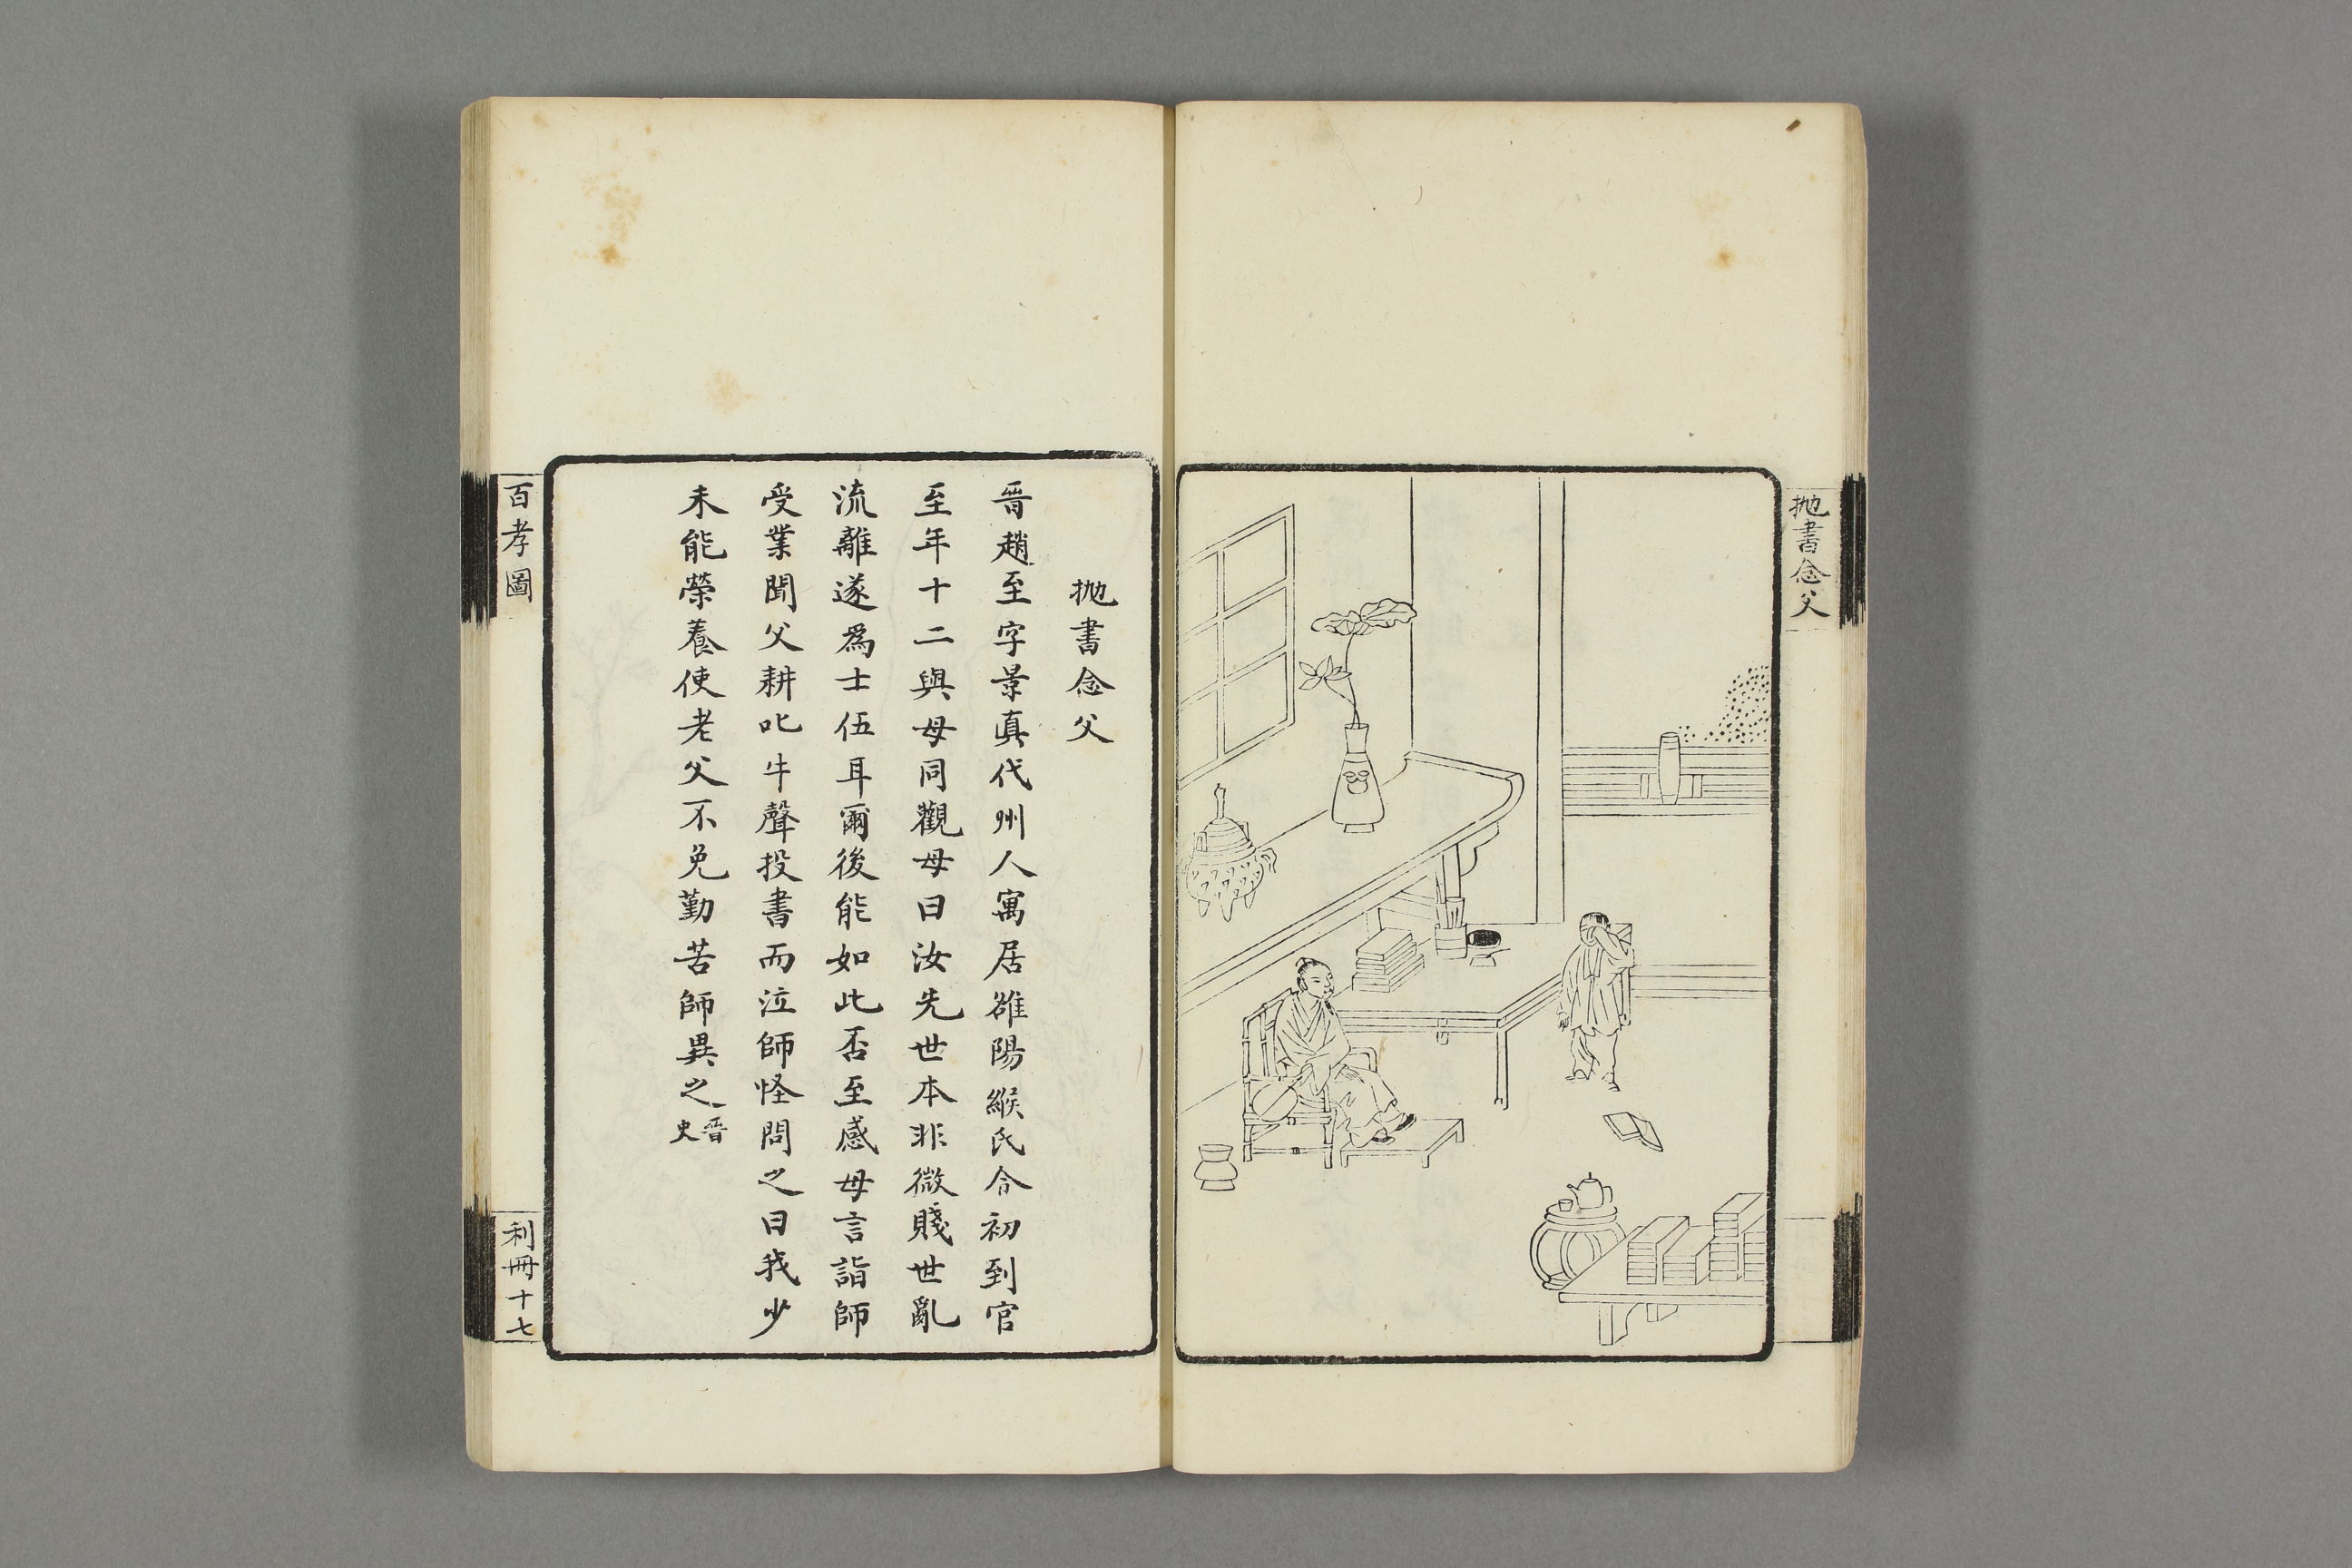 抛書念父
拋書念父
晉趙至字景真代州人寓居雒陽緱氏令初到官
至年十二與母同觀母曰汝先世本非微賤世亂
流離遂為士伍耳爾後能如此否至感母言詣師
受業聞父耕叱牛聲投書而泣師怪問之曰我少
未能榮養使老父不免勤苦師異之晉史
百孝圖
利冊十七